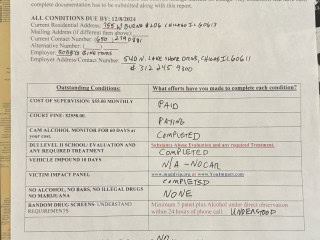 complete documentation has to be submitted along with this report.
ALL CONDITIONS DUE BY: 12/8/2024
Current Residential Address: 755 W BURNS #206 CHICAGO IL 60613
Mailing Address (if different then above):
Current Contact Number: (650)
Alternative Number: ( )
Employer: BOBBYS BIKE TOURS
Employer Address/Contact Number: 540 N. LAKE SHORE DRIVE, CHICAGO IL 60611
# 312 245 9300
Outstanding Conditions: What efforts have you made to complete each condition?
COST OF SUPERVISION: $55.00 MONTHLY PAID
COURT FINE: PAYING
CAM ALCOHOL MONITOR FOR 60 DAYS at your cost. COMPLETED
DUI LEVEL II SCHOOL/ EVALUATION AND Substance Abuse Evaluation and any required Treatment.
ANY REQUIRED TREATMENT COMPLETED
VEHICLE IMPOUND 10 DAYS N/A - NO CAR
VICTIM IMPACT PANEL
COMPLETED
NO ALCOHOL, NO BARS, NO ILLEGAL DRUGS
NO MARIJUANA NONE
RANDOM DRUG SCREENS- UNDERSTAND Minimum 5 panel plus Alcohol under direct observation
REQUIREMENTS within 24 hours of phone call UNDERSTOOD
NO